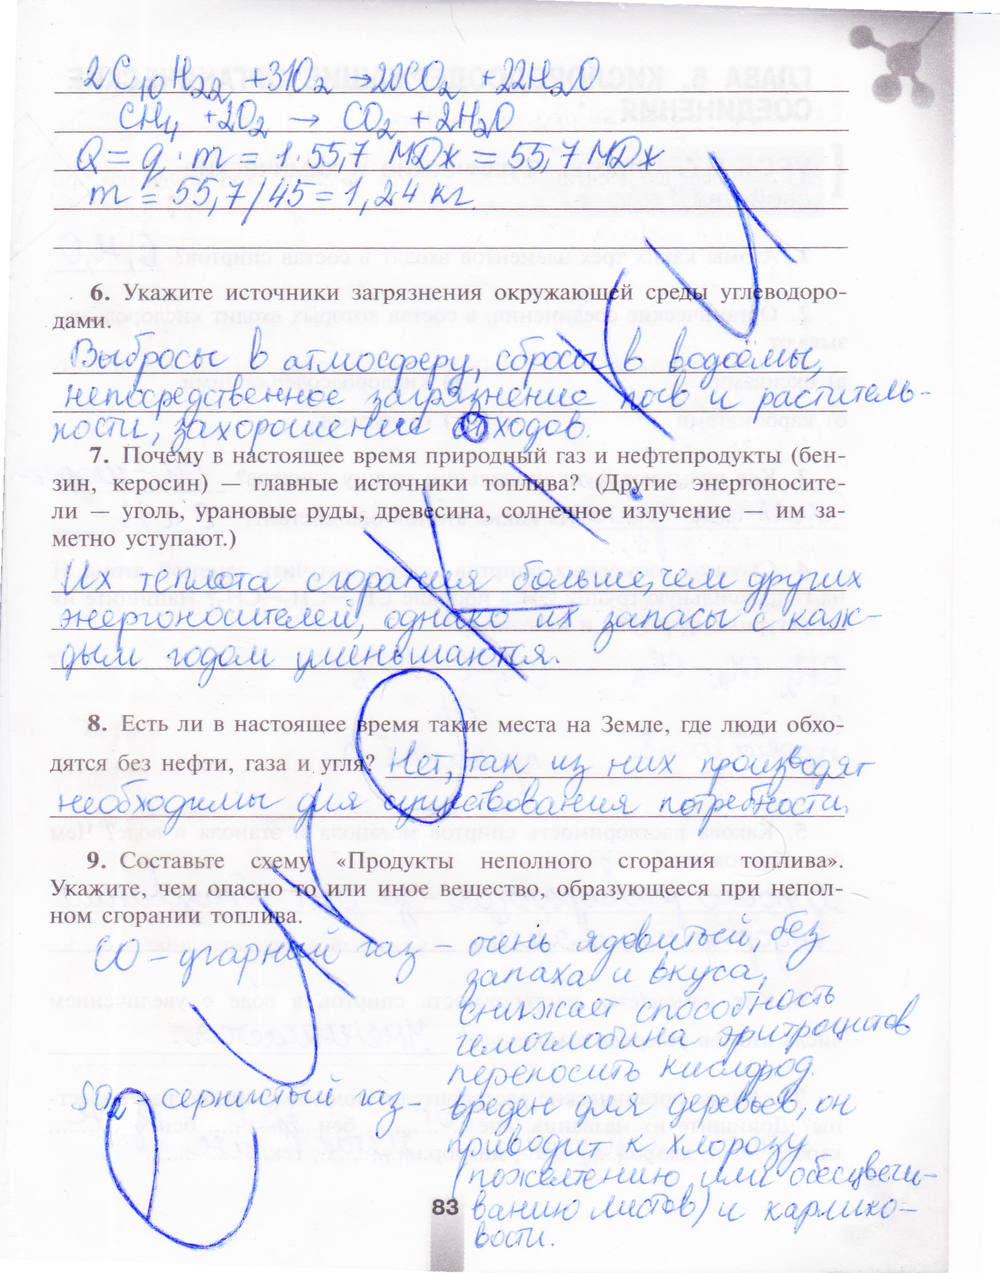 2C₁₀H₂₂ +31O₂ →20CO₂ +22H₂O
CH₄ +2O₂ → CO₂ + 2H₂O
Q = q · m = 1 · 55,7 МДж = 55,7 МДж
m = 55,7/45 = 1,24 кг.
6. Укажите источники загрязнения окружающей среды углеводоро-
дами.
Выбросы в атмосферу, сбросы в водоёмы,
непосредственное загрязнение почв и раститель-
ности, захоронение отходов.
7. Почему в настоящее время природный газ и нефтепродукты (бен-
зин, керосин) — главные источники топлива? (Другие энергоносите-
ли — уголь, урановые руды, древесина, солнечное излучение — им за-
метно уступают.)
Их теплота сгорания больше, чем других
энергоносителей, однако их запасы с каж-
дым годом уменьшаются.
8. Есть ли в настоящее время такие места на Земле, где люди обхо-
дятся без нефти, газа и угля? Нет, так из них производят
необходимы для существования потребности.
9. Составьте схему «Продукты неполного сгорания топлива».
Укажите, чем опасно то или иное вещество, образующееся при непол-
ном сгорании топлива.
CO – угарный газ – очень ядовитый, без
запаха и вкуса,
снижает способность
гемоглобина эритроцитов
переносить кислород.
SO₂ – сернистый газ – вреден для деревьев, он
приводит к хлорозу
(пожелтению или обесцвечи-
ванию листов) и карлико-
вости.
83